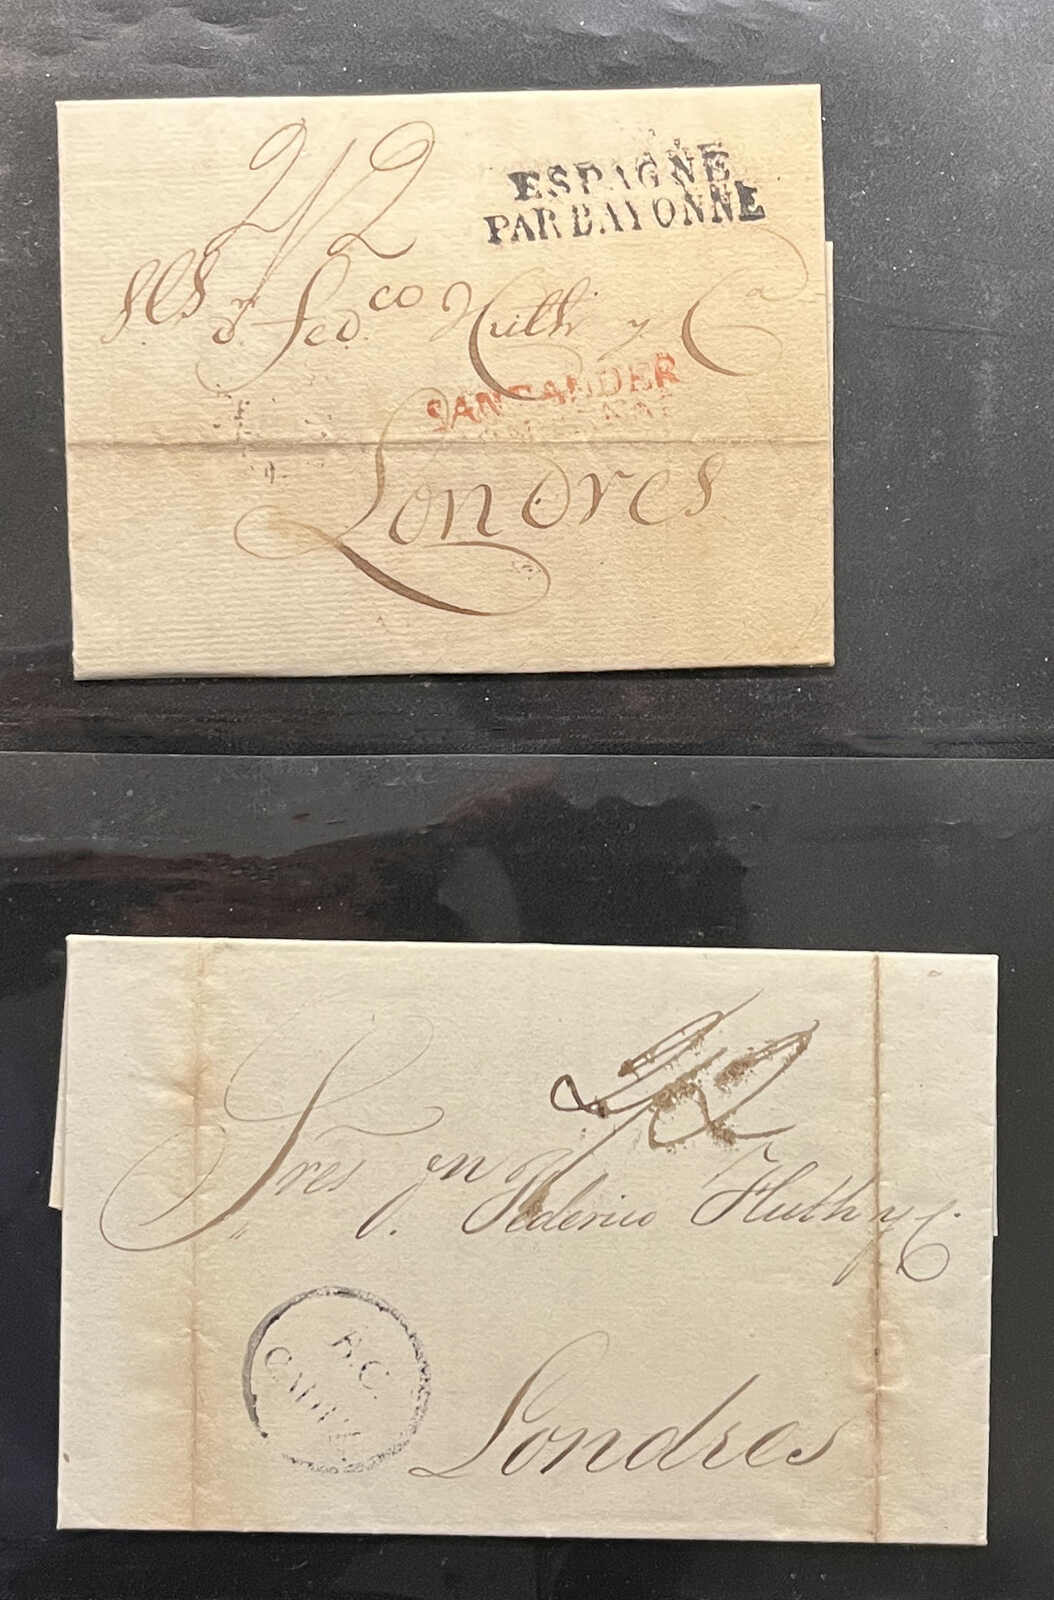 2/2
ESPAGNE
PAR BAYONNE
Sres Dn Fed.co Huth y Ca
SANTANDER
Londres
2/2
Sres Dn Federico Huth y C.
A.C.
CADIX
Londres